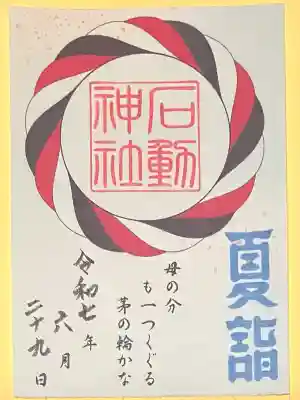 石動
神社
夏詣
母の分
も一つくぐる
茅の輪かな
令和七年
六月
二十九日